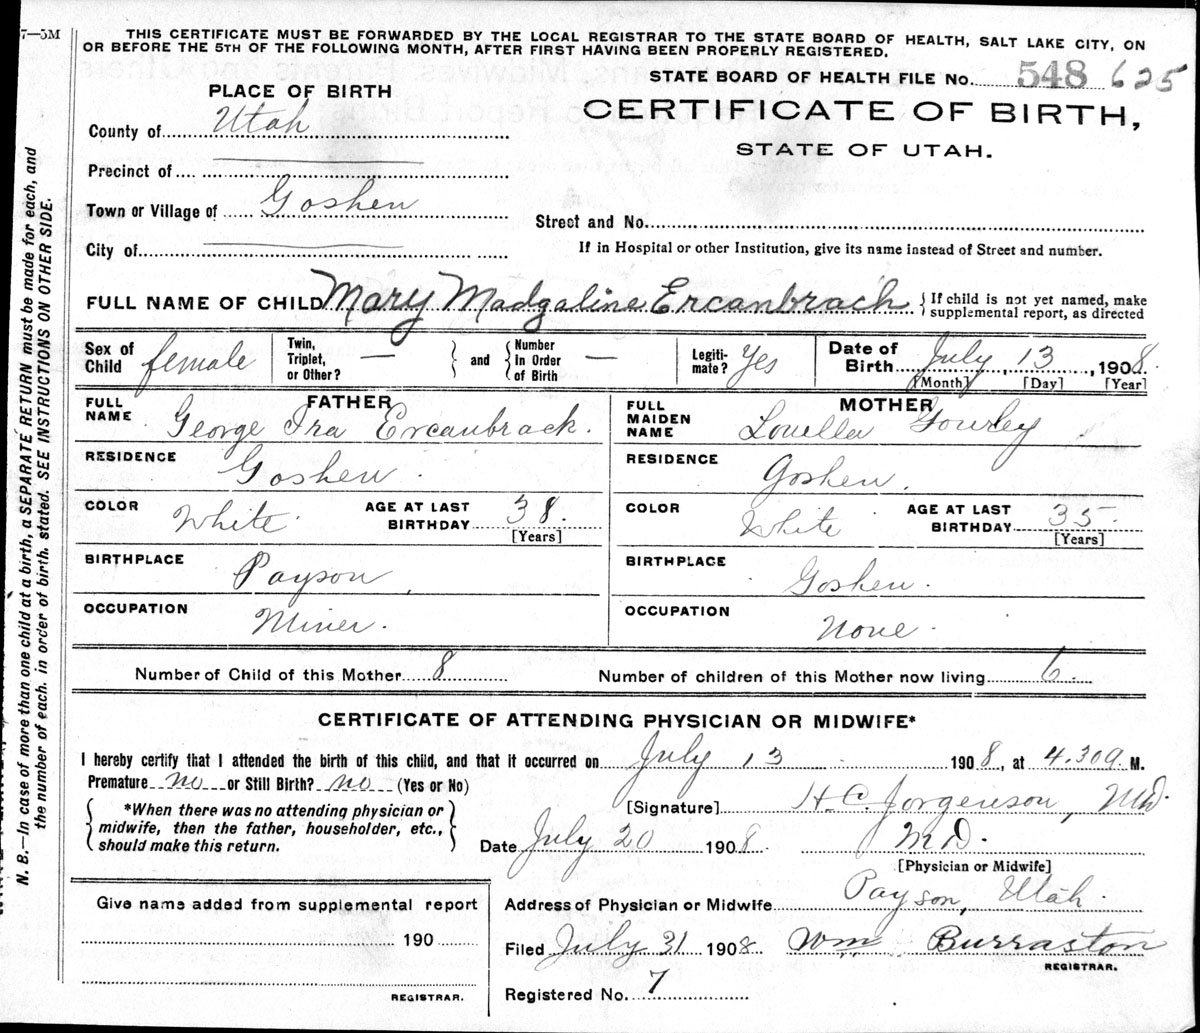 7—5M
THIS CERTIFICATE MUST BE FORWARDED BY THE LOCAL REGISTRAR TO THE STATE BOARD OF HEALTH, SALT LAKE CITY, ON
OR BEFORE THE 5TH OF THE FOLLOWING MONTH, AFTER FIRST HAVING BEEN PROPERLY REGISTERED.
STATE BOARD OF HEALTH FILE No. 548 625
PLACE OF BIRTH
CERTIFICATE OF BIRTH,
County of Utah
STATE OF UTAH.
Precinct of
Town or Village of Goshen
Street and No.
City of
If in Hospital or other Institution, give its name instead of Street and number.
FULL NAME OF CHILD Mary Madgaline Ercanbrach { If child is not yet named, make
supplemental report, as directed
Sex of Child female Twin, Triplet, or Other? — } and { Number In Order of Birth — Legiti-mate? Yes Date of Birth July 13, 1908.
[Month] [Day] [Year]
FATHER
FULL NAME George Ira Ercanbrack.
RESIDENCE Goshen.
COLOR White. AGE AT LAST BIRTHDAY 38.
[Years]
BIRTHPLACE Payson,
OCCUPATION Miner.
MOTHER
FULL MAIDEN NAME Louella Gourley
RESIDENCE Goshen.
COLOR White AGE AT LAST BIRTHDAY 35
[Years]
BIRTHPLACE Goshen.
OCCUPATION None.
Number of Child of this Mother 8 Number of children of this Mother now living 6.
CERTIFICATE OF ATTENDING PHYSICIAN OR MIDWIFE*
I hereby certify that I attended the birth of this child, and that it occurred on July 13 1908, at 4.30a M.
Premature no or Still Birth? no (Yes or No)
{ *When there was no attending physician or
midwife, then the father, householder, etc.,
should make this return. }
[Signature] H C Jorgenson, MD.
Date July 20 1908. M D.
[Physician or Midwife]
Give name added from supplemental report
190
REGISTRAR.
Address of Physician or Midwife Payson, Utah.
Filed July 31 1908 Wm Burraston
REGISTRAR.
Registered No. 7
N. B.—In case of more than one child at a birth, a SEPARATE RETURN must be made for each, and
the number of each, in order of birth, stated. SEE INSTRUCTIONS ON OTHER SIDE.